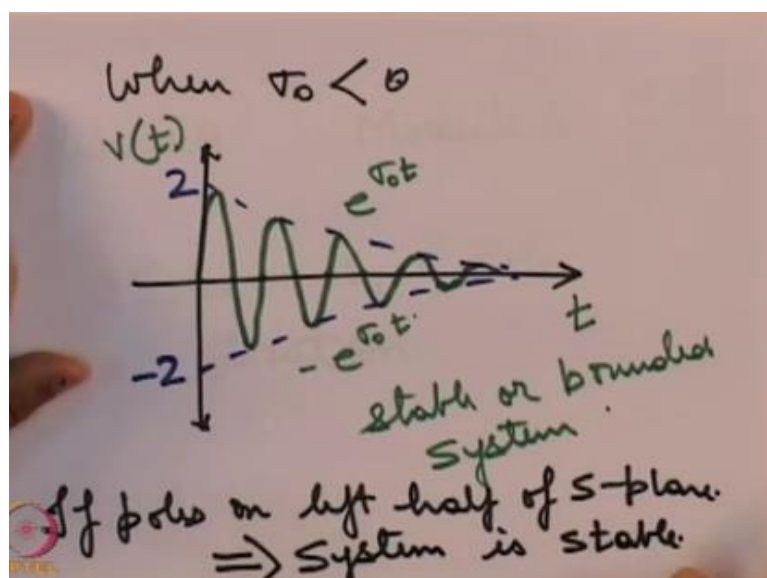 When σ₀ < 0
v(t)
2
e^{σ₀t}
t
-2
-e^{σ₀t}
stable or bounded
system.
If poles on left half of s-plane.
⇒ System is stable.